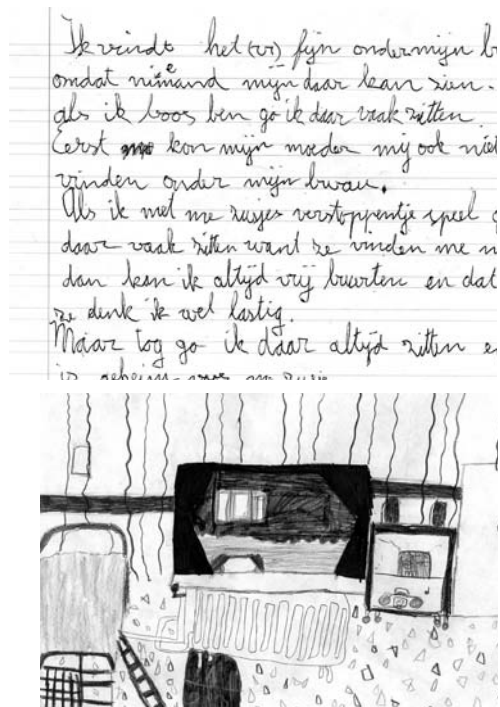 Ik vindt het (er) fijn ondermijn b
omdat niemand mijn daar kan zien.
als ik boos ben go ik daar vaak zitten.
Eerst kon mijn moeder mij ook niet
vinden onder mijn burau.
Als ik met me zusjes verstoppentje speel g
daar vaak zitten want ze vinden me n
dan kan ik altijd vrij buurten en dat
ze denk ik wel lastig.
Maar tog go ik daar altijd zitten e
is geheim voor